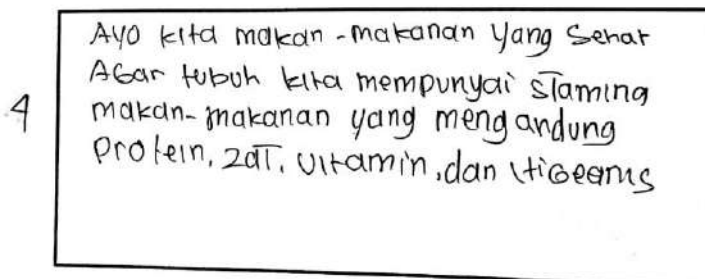 Ayo kita makan-makanan yang sehat
Agar tubuh kita mempunyai stamina
4 makan-makanan yang mengandung
protein, zat, vitamin, dan